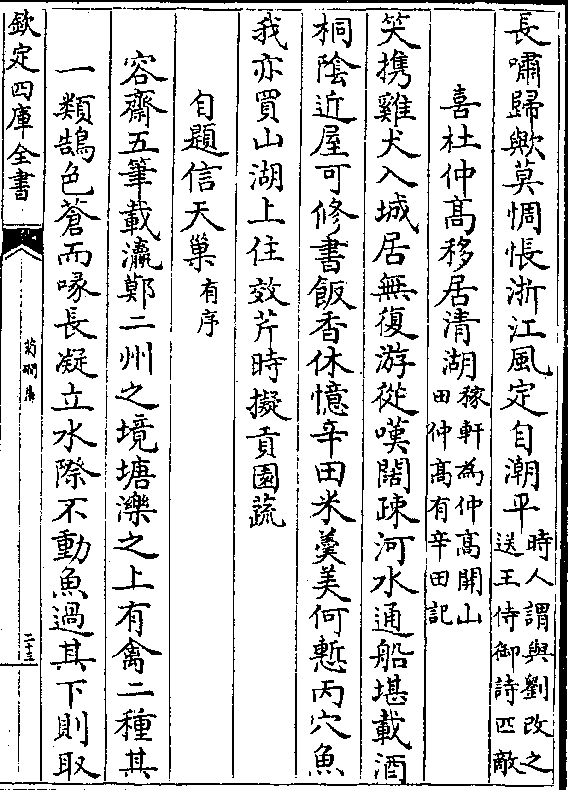 長嘯歸歟莫惆悵浙江風定自潮平時人謂與劉改之送王侍御詩匹敵
喜杜仲髙移居清湖稼軒為仲髙開山田仲髙有辛田記
笑携雞犬入城居無復游從嘆闊疎河水通船堪載酒
桐陰近屋可修書飯香休憶辛田米羮美何慙丙穴魚
我亦買山湖上住效芹時擬貢園蔬
自題信天巢有序
容齋五筆載瀛鄭二州之境塘濼之上有禽二種其
一類鵠色蒼而喙長凝立水際不動魚過其下則取
欽定四庫全書
菊磵集
二十三